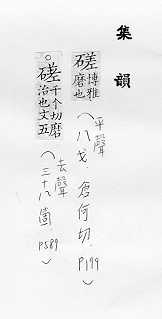 集韻
磋博雅磨也
平聲
（八戈 倉何切. P199）
○磋千个切磨治也文五
去聲
（三十八箇 P589）